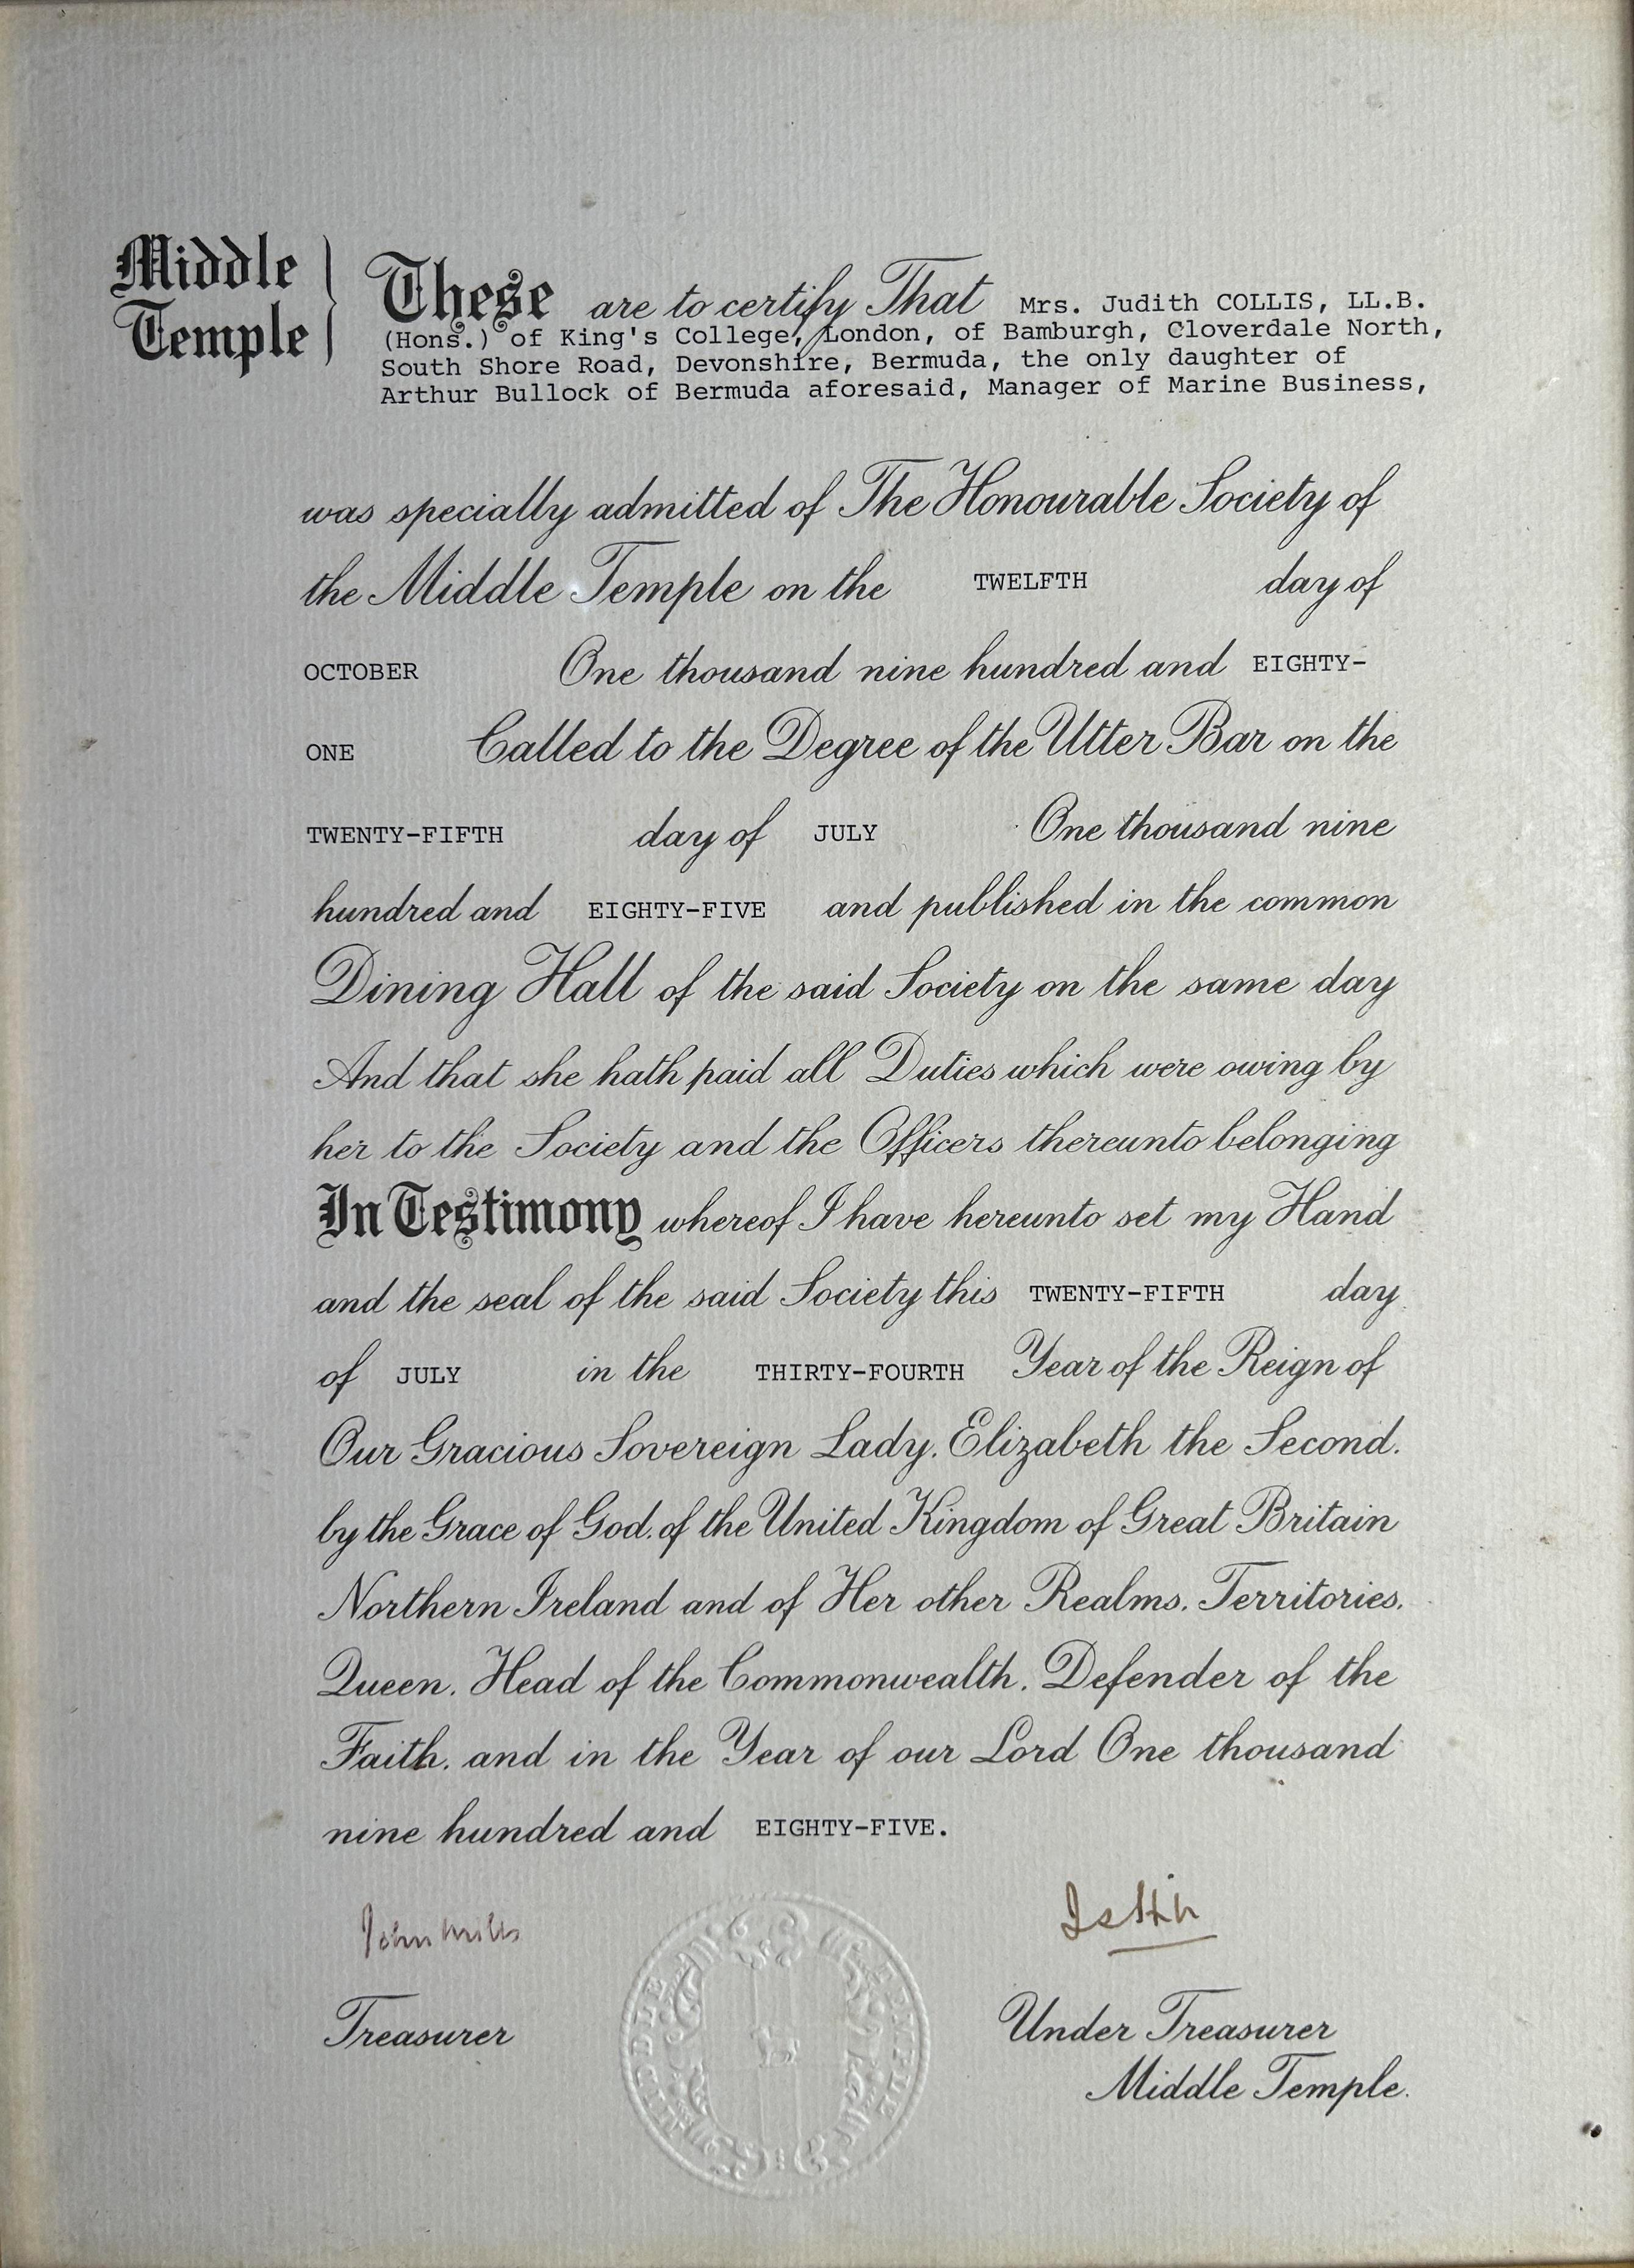 Middle
Temple
These are to certify That Mrs. Judith COLLIS, LL.B.
(Hons.) of King's College, London, of Bamburgh, Cloverdale North,
South Shore Road, Devonshire, Bermuda, the only daughter of
Arthur Bullock of Bermuda aforesaid, Manager of Marine Business,
was specially admitted of The Honourable Society of
the Middle Temple on the TWELFTH day of
OCTOBER One thousand nine hundred and EIGHTY-
ONE Called to the Degree of the Utter Bar on the
TWENTY-FIFTH day of JULY One thousand nine
hundred and EIGHTY-FIVE and published in the common
Dining Hall of the said Society on the same day
And that she hath paid all Duties which were owing by
her to the Society and the Officers thereunto belonging
In Testimony whereof I have hereunto set my Hand
and the seal of the said Society this TWENTY-FIFTH day
of JULY in the THIRTY-FOURTH Year of the Reign of
Our Gracious Sovereign Lady. Elizabeth the Second.
by the Grace of God. of the United Kingdom of Great Britain
Northern Ireland and of Her other Realms. Territories.
Queen. Head of the Commonwealth. Defender of the
Faith. and in the Year of our Lord One thousand
nine hundred and EIGHTY-FIVE.
John Mills
Treasurer
MIDDLE TEMPLE
Under Treasurer
Middle Temple.